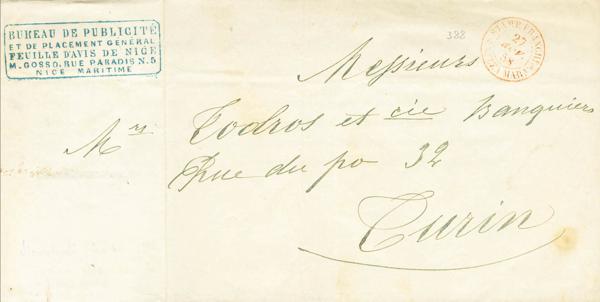 BUREAU DE PUBLICITÉ
ET DE PLACEMENT GÉNÉRAL
FEUILLE D'AVIS DE NICE
M. GOSSO, RUE PARADIS N. 5
NICE MARITIME
388
27
58
Messieurs
Mrs Todros et cie Banquiers
Rue du po 32
Turin